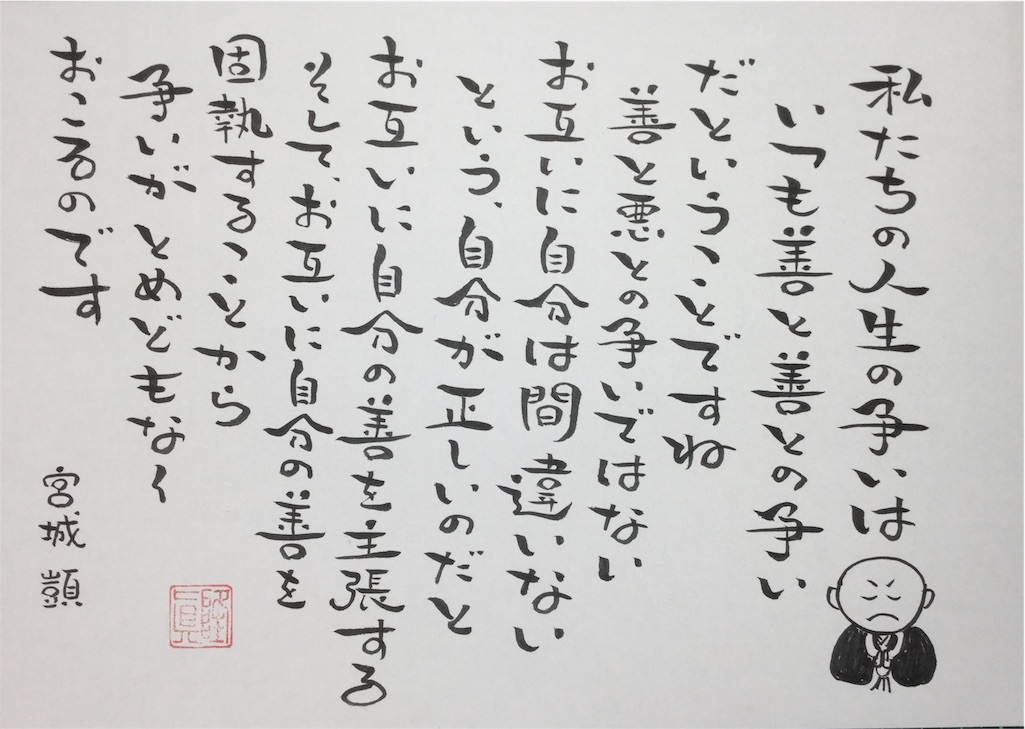 私たちの人生の争いは
いつも善と善との争い
だということですね
善と悪との争いではない
お互いに自分は間違いない
という、自分が正しいのだと
お互いに自分の善を主張する
そして、お互いに自分の善を
固執することから
争いがとめどもなく
おこるのです
宮城 顗